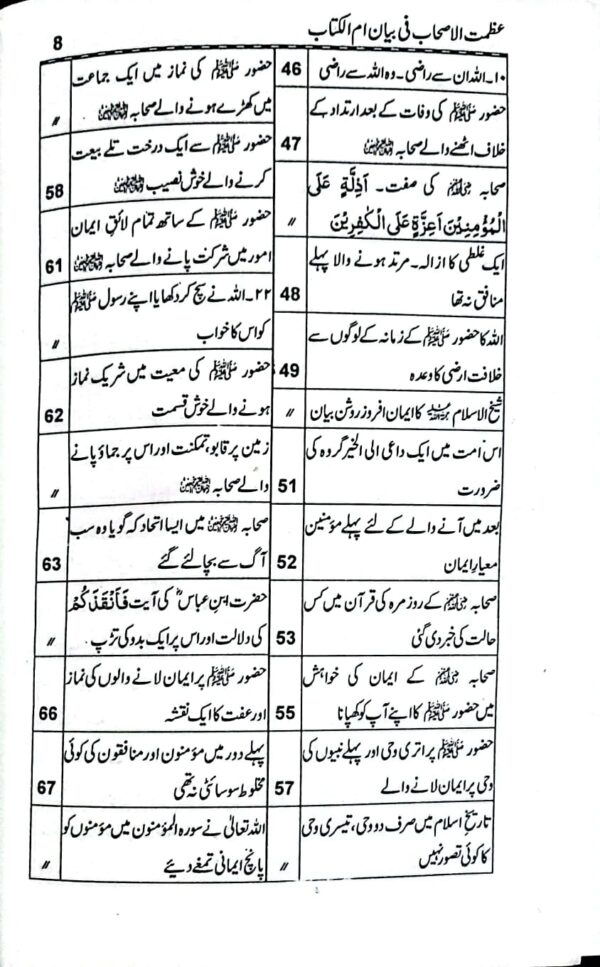 عظمت الاصحاب فی بیان ام الکتاب
8
۱۰۔اللہ ان سے راضی۔ وہ اللہ سے راضی
46
حضور ﷺ کی وفات کے بعد ارتداد کے
خلاف اٹھنے والے صحابہ رضی اللہ عنہم
47
صحابہ رضی اللہ عنہم کی صفت۔ اَذِلَّةٍ عَلَی
الْمُؤْمِنِیْنَ اَعِزَّةٍ عَلَی الْکٰفِرِیْنَ
//
ایک غلطی کا ازالہ۔ مرتد ہونے والا پہلے
منافق نہ تھا
48
اللہ کا حضور ﷺ کے زمانہ کے لوگوں سے
خلافت ارضی کا وعدہ
49
شیخ الاسلام رحمہ اللہ کا ایمان افروز روشن بیان
//
اس امت میں ایک داعی الی الخیر گروہ کی
ضرورت
51
بعد میں آنے والے کے لئے پہلے مؤمنین
معیار ایمان
52
صحابہ رضی اللہ عنہم کے روز مرہ کی قرآن میں کس
حالت کی خبر دی گئی
53
صحابہ رضی اللہ عنہم کے ایمان کی خواہش
میں حضور ﷺ کا اپنے آپ کو کھپانا
55
حضور ﷺ پر اتری وحی اور پہلے نبیوں کی
وحی پر ایمان لانے والے
57
تاریخ اسلام میں صرف دو وحی، تیسری وحی
کا کوئی تصور نہیں
//
حضور ﷺ کی نماز میں ایک جماعت
میں کھڑے ہونے والے صحابہ رضی اللہ عنہم
//
حضور ﷺ سے ایک درخت تلے بیعت
کرنے والے خوش نصیب رضی اللہ عنہم
58
حضور ﷺ کے ساتھ تمام لائق ایمان
امور میں شرکت پانے والے صحابہ رضی اللہ عنہم
61
۲۲۔اللہ نے سچ کر دکھایا اپنے رسول ﷺ
کو اس کا خواب
//
حضور ﷺ کی معیت میں شریک نماز
ہونے والے خوش قسمت
62
زمین پر قابو، تمکنت اور اس پر جماؤ پانے
والے صحابہ رضی اللہ عنہم
//
صحابہ رضی اللہ عنہم میں ایسا اتحاد کہ گویا وہ سب
آگ سے بچا لئے گئے
63
حضرت ابن عباسؓ کی آیت فَاَنْقَذَکُمْ
کی دلالت اور اس پر ایک بدو کی تڑپ
//
حضور ﷺ پر ایمان لانے والوں کی نماز
اور عفت کا ایک نقشہ
66
پہلے دور میں مؤمنون اور منافقون کی کوئی
مخلوط سوسائٹی نہ تھی
67
اللہ تعالیٰ نے سورہ المؤمنون میں مؤمنوں کو
پانچ ایمانی تمغے دیئے
//